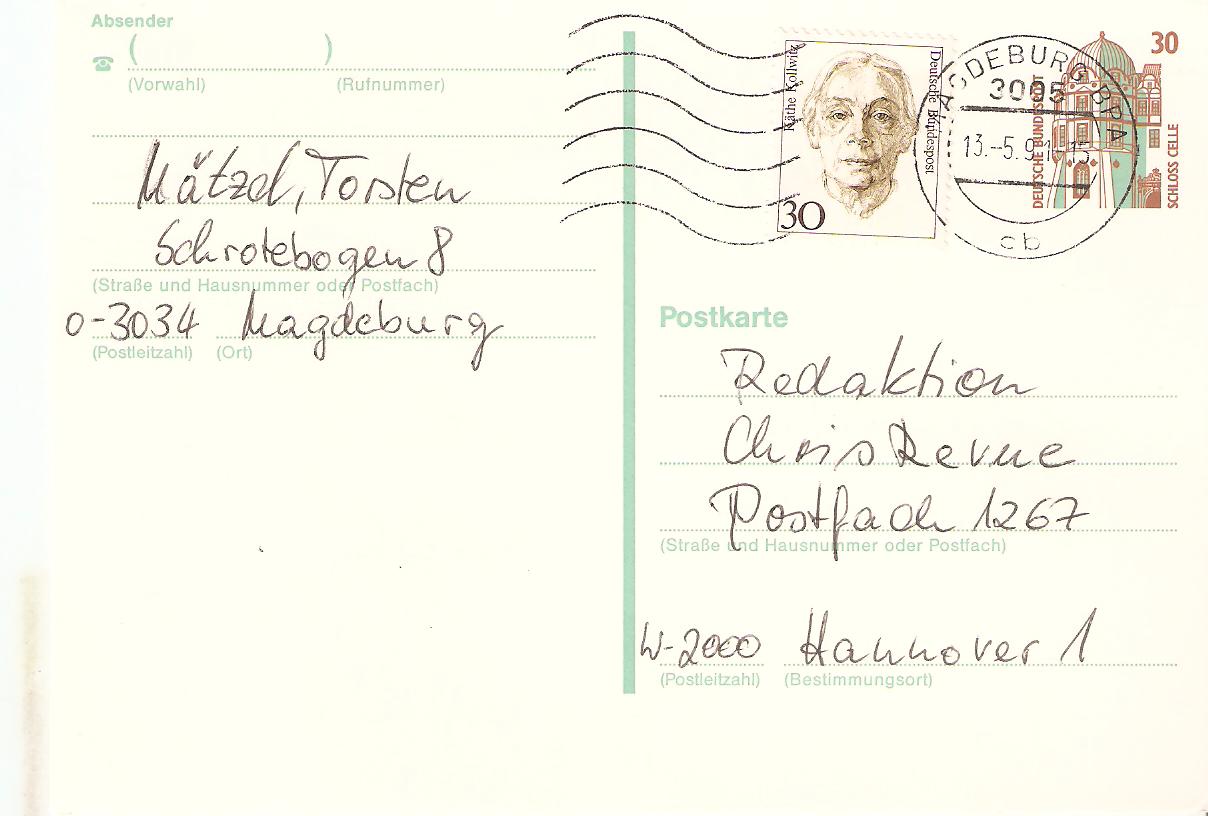 Absender
( )
(Vorwahl) (Rufnummer)
Mätzel, Torsten
Schrotebogen 8
(Straße und Hausnummer oder Postfach)
O-3034 Magdeburg
(Postleitzahl) (Ort)
Käthe Kollwitz
Deutsche Bundespost
30
MAGDEBURG BPA
3095
13.-5.9
cb
30
DEUTSCHE BUNDESPOST
SCHLOSS CELLE
Postkarte
Redaktion
Chris Revue
Postfach 1267
(Straße und Hausnummer oder Postfach)
W-2000 Hannover 1
(Postleitzahl) (Bestimmungsort)